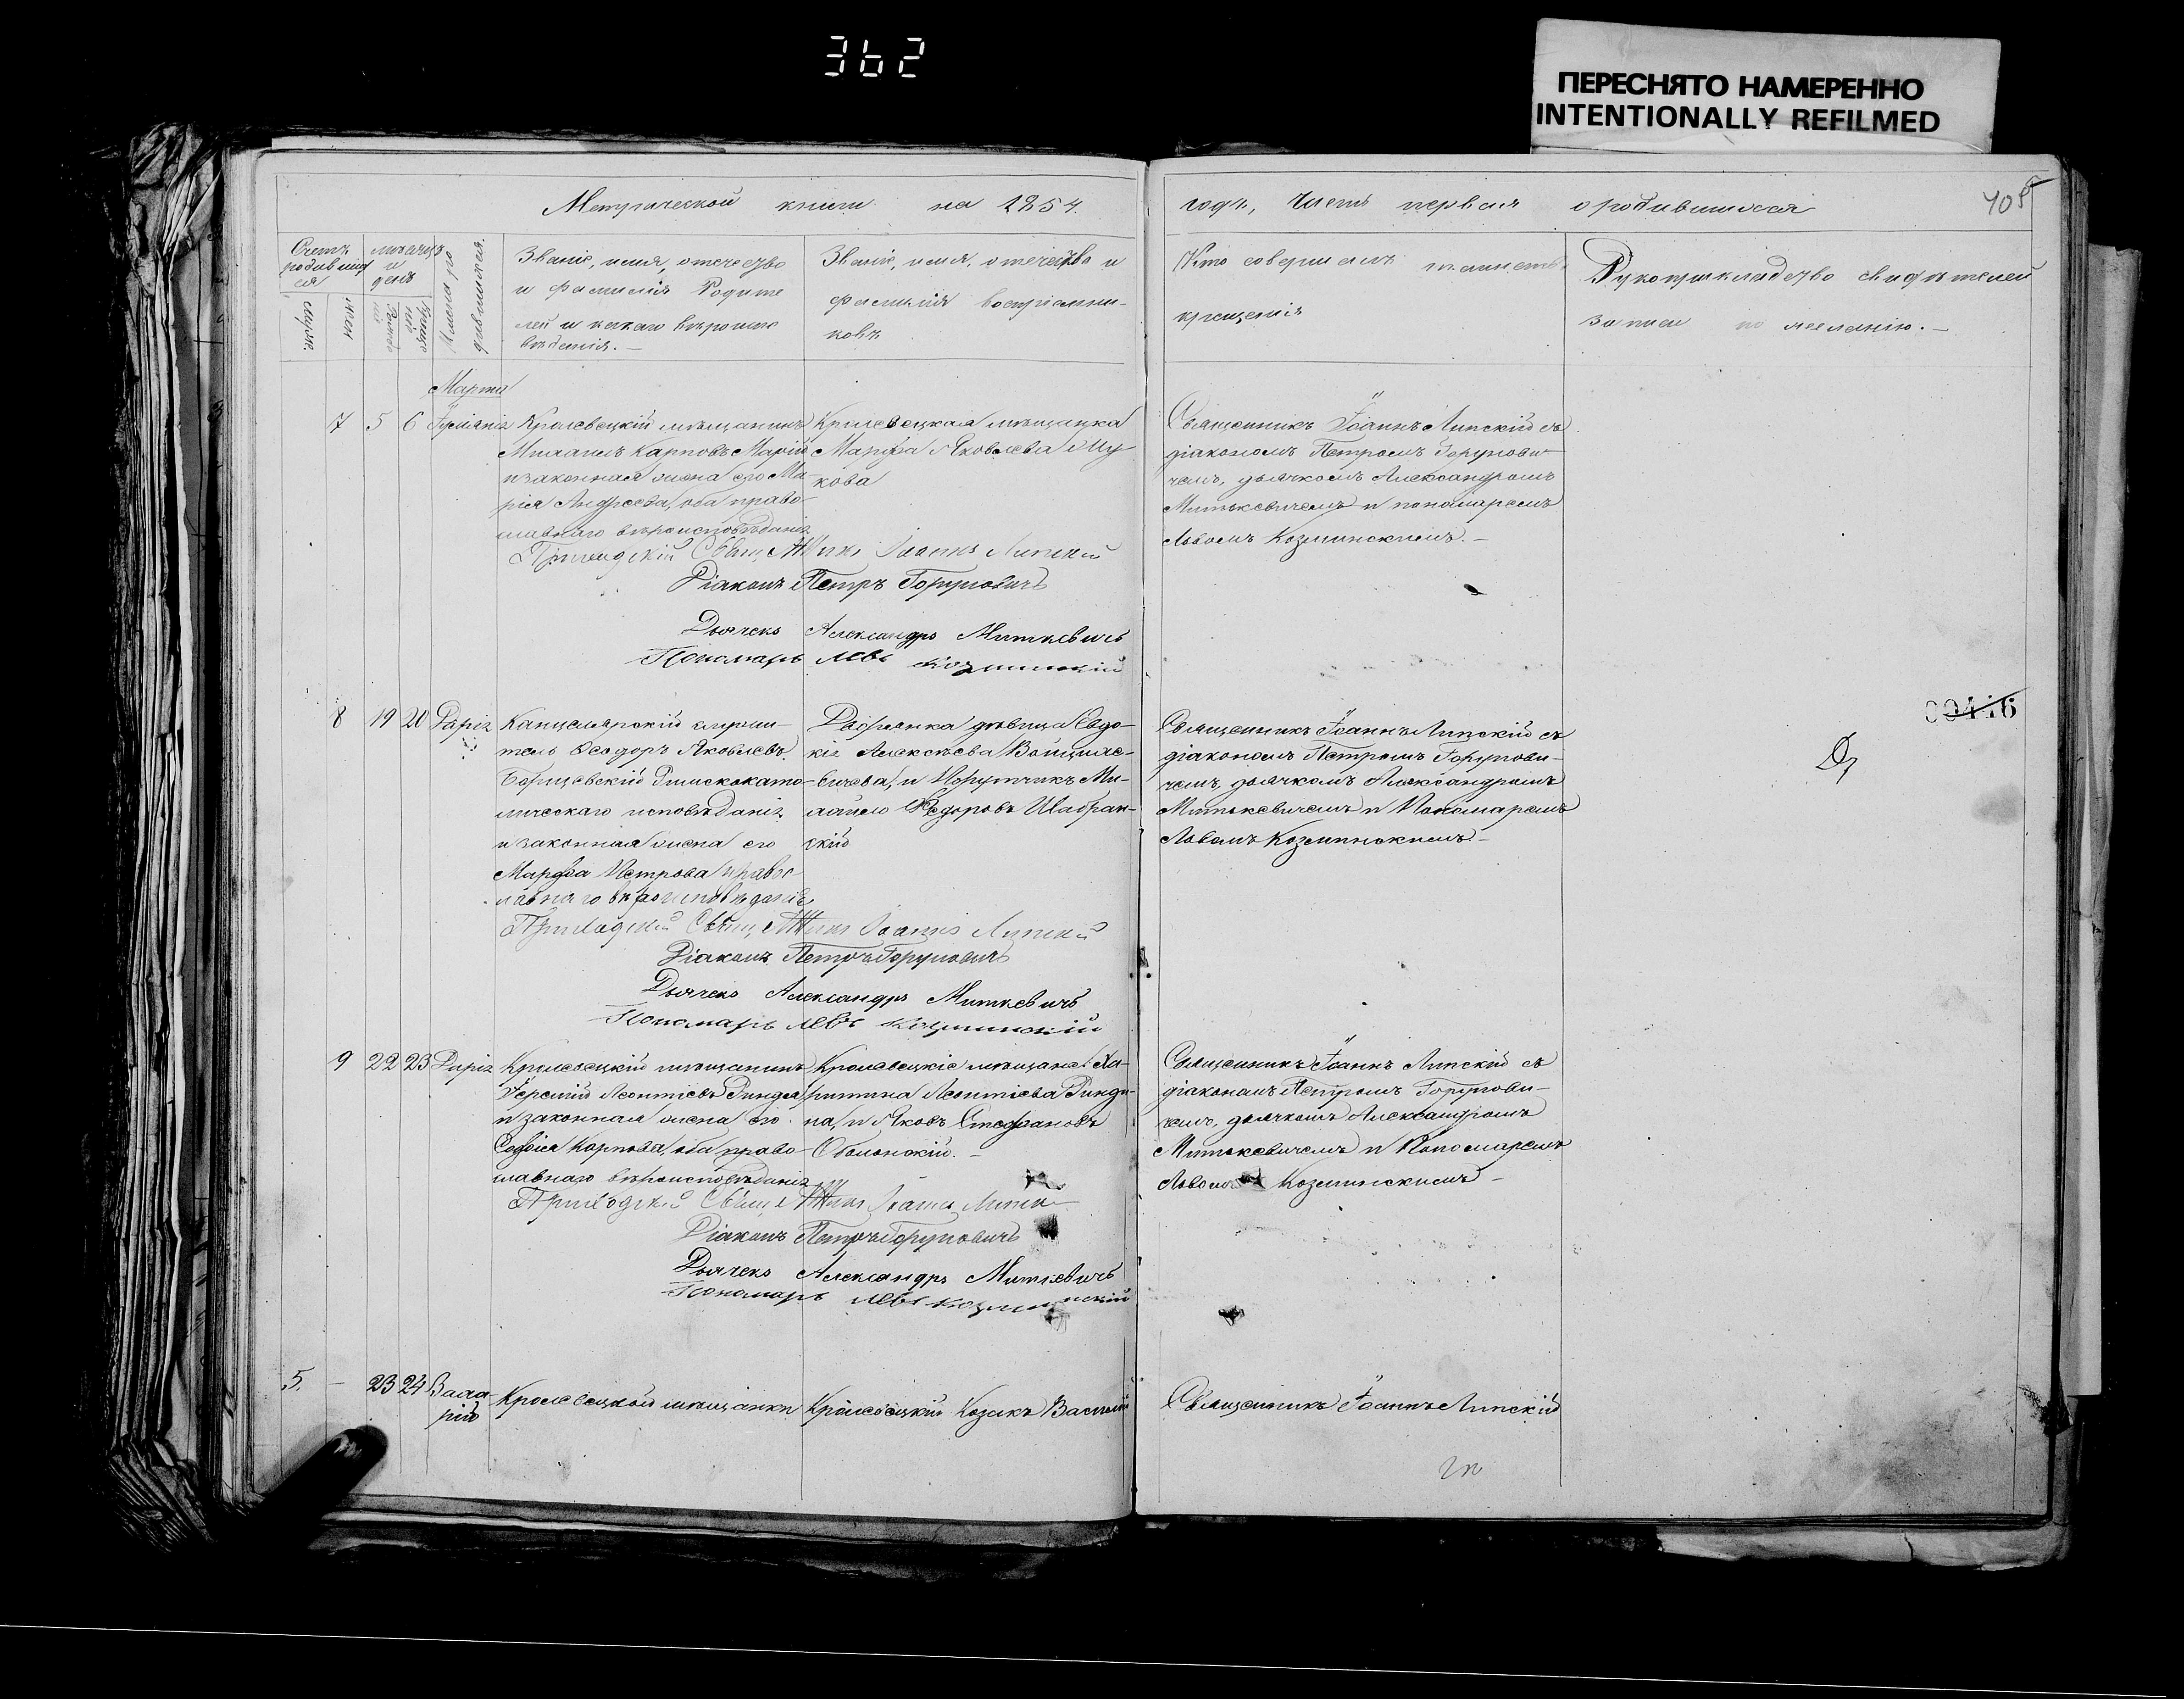 362
ПЕРЕСНЯТО НАМЕРЕННО
INTENTIONALLY REFILMED
Метрической книги на 1854
годъ, Часть первая о родившихся
405
Счетъ
родивших
ся
мѣсяцъ
и
день
Имена ро
дившихся.
Званіе, имя, отечество
и фамилія Родите
лей и какаго вѣроиспо
вѣданія.—
Званіе, имя, отечество и
фамилія воспріемни-
ковъ
Кто совершалъ таинство
крещенія
Рукоприкладство свидѣтелей
записи по желанію.—
Марта
7 5 6
Кролевецкій мѣщанинъ
Михаилъ Карповъ
и законная жена его Ма
рія Андреева, оба право-
славнаго вѣроисповѣданія
Кролевецкая мѣщанка
Марфа Яковлева Шу-
кова
Священникъ Іоаннъ Липскій съ
діакономъ Петромъ Горунови-
чемъ, дьячкомъ Александромъ
Митькевичемъ и пономаремъ
Львомъ Козминскимъ.—
Приходскій Священникъ Іоаннъ Липскій
Діаконъ Петръ Горуновичъ
Дьячекъ Александръ Миткевичъ
Пономарь Левъ Козминскій
8 19 20 Дарія
Канцелярскій служи-
тель Ѳеодоръ Яковлевъ
Борщевскій Римскокато-
лическаго исповѣданія
и законная жена его
Марфа Петрова правос
лавнаго вѣроисповѣданія
Дворянка дѣвица Евдо-
кія Алексѣева Войцихо-
вичева, и Порутчикъ Ми-
хайло Ѳедоровъ Шабран-
скій
Священникъ Іоаннъ Липскій съ
діакономъ Петромъ Горунови-
чемъ, дьячкомъ Александромъ
Митькевичемъ и Пономаремъ
Львомъ Козминскимъ—
00446
Приходскій Священникъ Іоаннъ Липскій
Діаконъ Петръ Горуновичъ
Дьячекъ Александръ Миткевичъ
Пономарь Левъ Козминскій
9 22 23 Дарія
Кролевецкій мѣщанинъ
Терентій Леонтіевъ
и законная жена его
Софія Карпова, оба право-
славнаго вѣроисповѣданія
Кролевецкіе мѣщане Ха-
ритина Леонтіева Ринди-
на, и Яковъ Стефановъ
Оболонскій.—
Священникъ Іоаннъ Липскій съ
діакономъ Петромъ Горунови-
чемъ, дьячкомъ Александромъ
Митькевичемъ и Пономаремъ
Львомъ Козминскимъ—
Приходскій Священникъ Іоаннъ Липск
Діаконъ Петръ Горуновичъ
Дьячекъ Александръ Миткевичъ
Пономарь Левъ Козминскій
5. — 23 24 Вала-
рій
Кролевецкой мѣщанки
Кролевецкій Козакъ Василій
Священникъ Іоаннъ Липскій